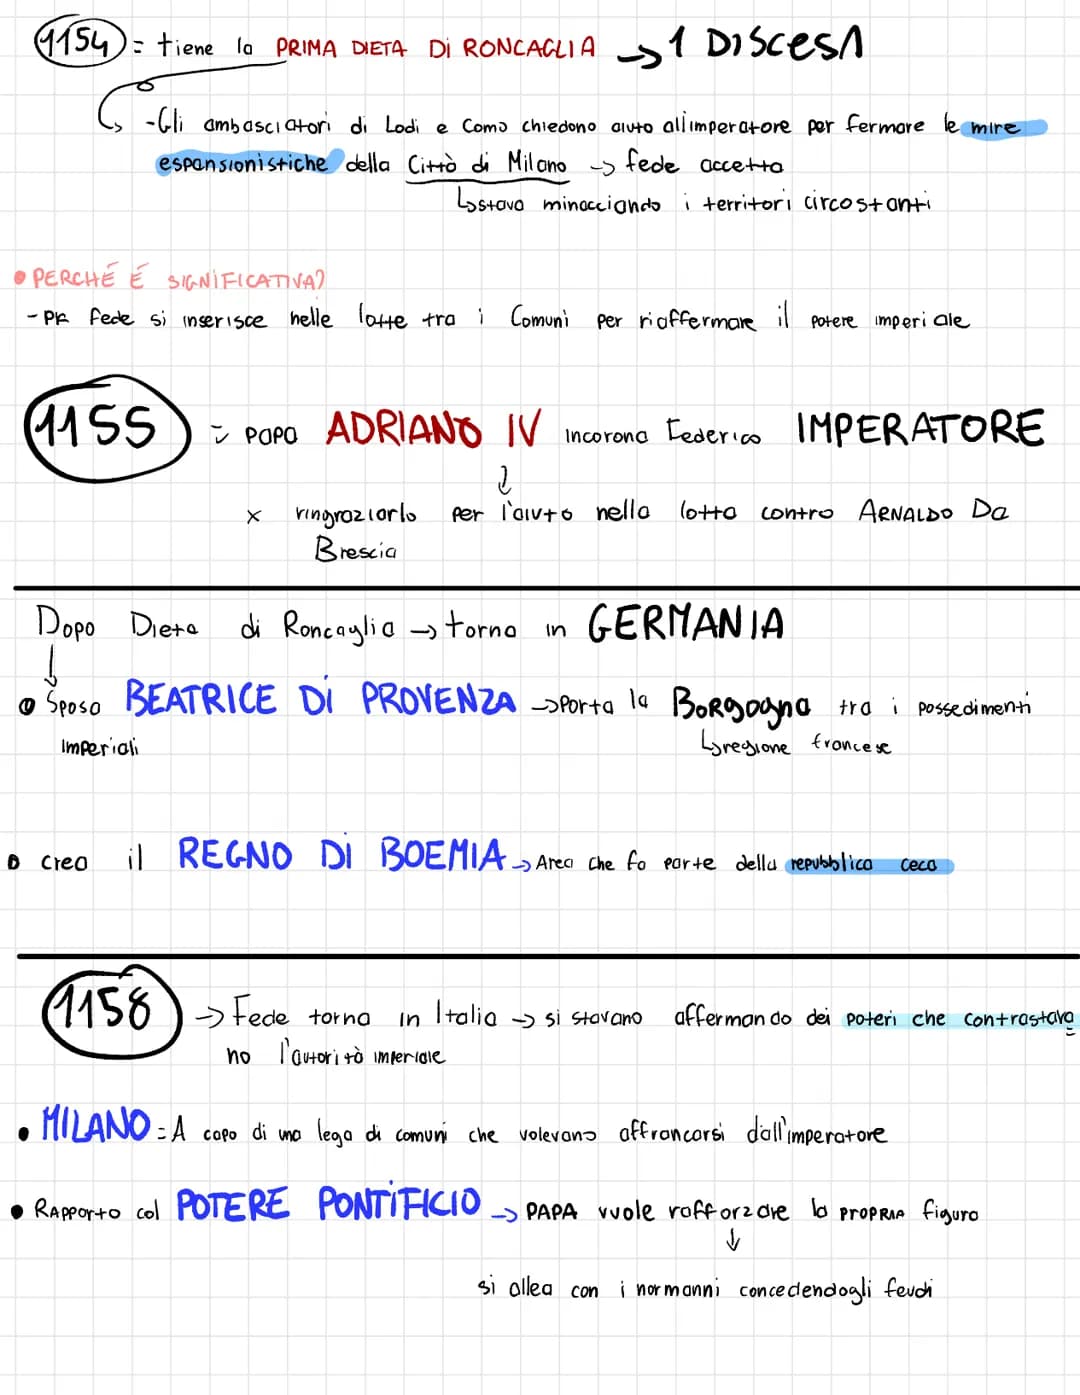 1154 = tiene la PRIMA DIETA Di RONCAGLIA → 1 DiSCESA
-Gli ambasciatori di Lodi e Como chiedono aiuto all'imperatore per fermare le mire
espansionistiche della Città di Milano → fede accetta
↳stava minacciando i territori circostanti
• PERCHÉ É SIGNIFICATIVA?
- PK fede si inserisce nelle lotte tra i Comuni per riaffermare il potere imperiale
1155 = PAPA ADRIANO IV incorona Federico IMPERATORE
↓
x ringraziarlo per l'aiuto nella lotta contro ARNALDO Da
Brescia
Dopo Dieta di Roncaglia → torna in GERMANIA
↓
• Sposa BEATRICE Di PROVENZA → Porta la Borgogna tra i possedimenti
imperiali ↳regione francese
• crea il REGNO Di BOEMIA → Area che fa parte della repubblica ceca
1158 → Fede torna in Italia → si stavano affermando dei poteri che contrastava
no l'autorità imperiale
• MILANO = A capo di una lega di comuni che volevano affrancarsi dall'imperatore
• RAPPorto col POTERE PONTIFICIO → PAPA vuole rafforzare la PROPRIA figura
↓
si allea con i normanni concedendogli feudi